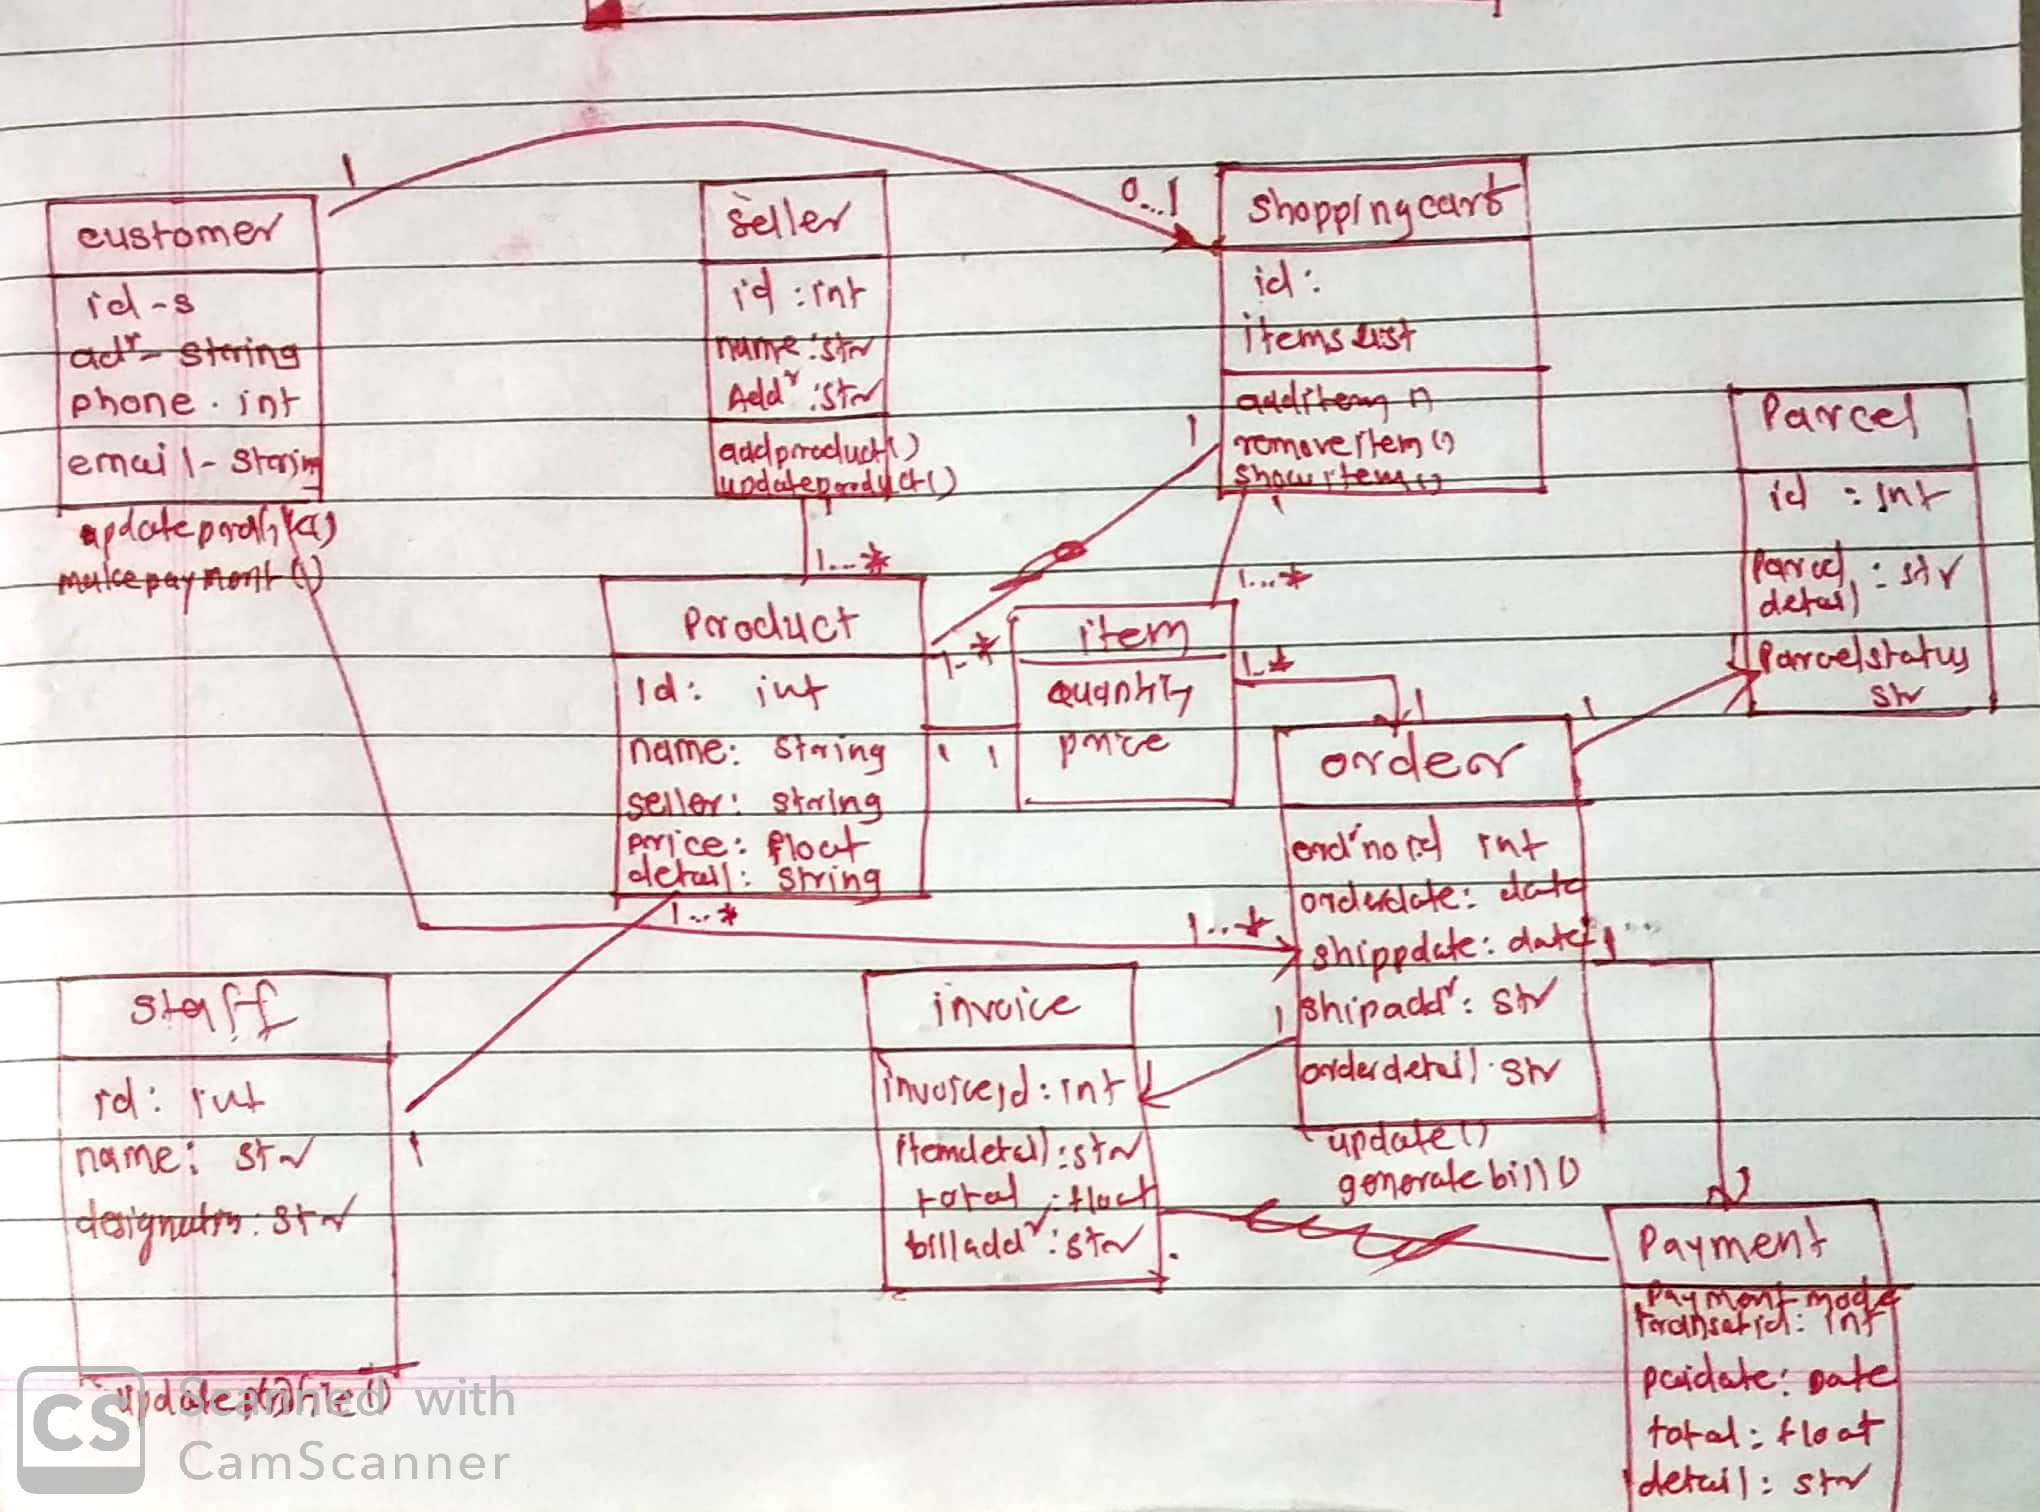 customer
id - s
adr - string
phone . int
email - string
makepayment ()
1
seller
id : int
name : str
Addr : str
addproduct()
updateproduct()
1
1...*
0...1
shoppingcart
id :
items list
additem ()
removeitem ()
showitem ()
1
1
1...*
Parcel
id : int
Parcel : str
detail
Parcelstatus
str
Product
id : int
name : string
seller : string
price : float
detail : string
1..*
1
1
1...*
item
quantity
price
1..*
1
order
int
orderdate : date
shippdate : date
shipaddr : str
orderdetail . str
update ()
generatebill ()
1
1...*
1
1
staff
id : int
name : str
: str
1
invoice
invoiceid : int
itemdetail : str
total : float
billaddr : str
1
Payment
Payment mode
: int
paidate : Date
total : float
detail : str
CS
Scanned with
CamScanner